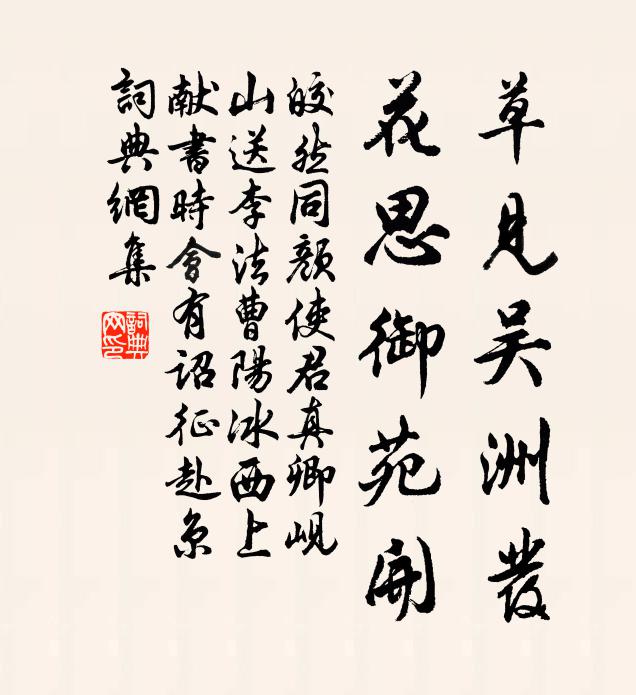 草見吴洲發
花思御苑開
皎然同顏使君真卿峴
山送李法曹陽冰西上
献書時會有詔征赴京
詞典網集
詞典網印